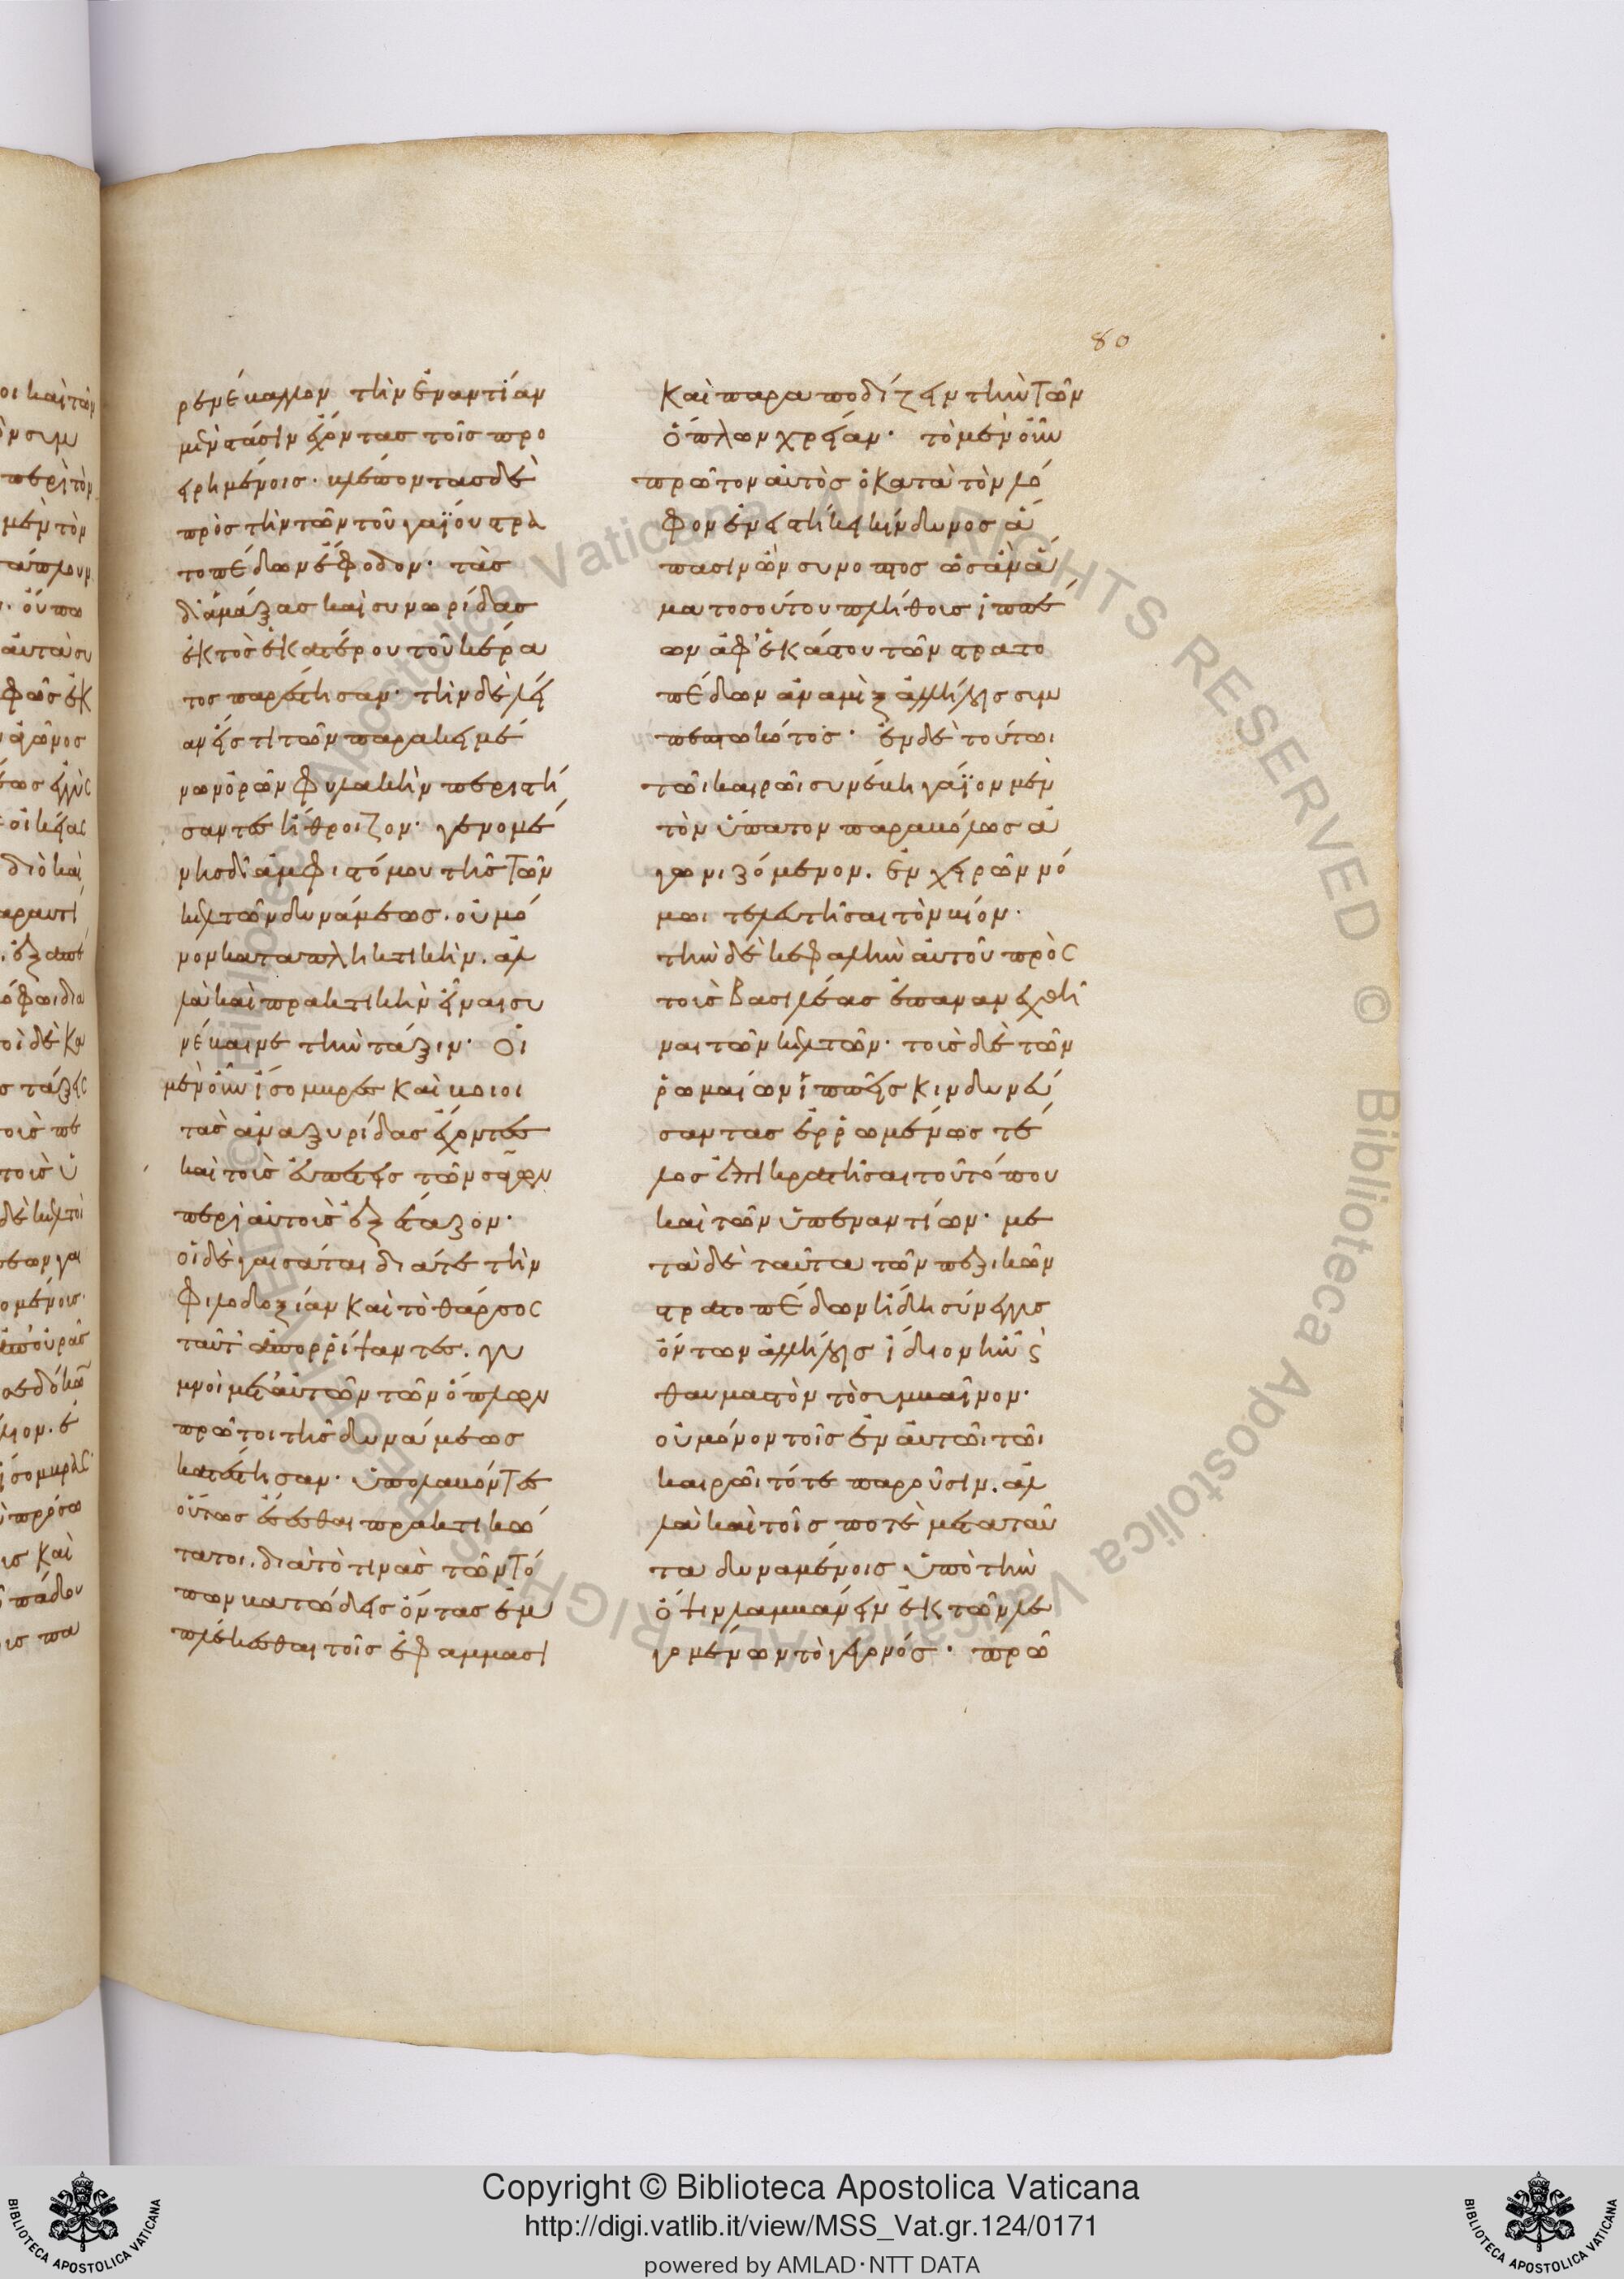 80
ρενέβαλλον τὴν ἐναντίαν
μὲν στάσιν ἔχοντας τοῖς προ
ειρημένοις· βλέποντας δὲ
πρὸς τὴν τῶν τοῦ γαΐου στρα
τοπέδων ἔφοδον· τὰς
δ' ἁμάξας καὶ συνωρίδας
ἐκτὸς ἑκατέρου τοῦ κέρα
τος παρέστησαν· τὴν δὲ λεί
αν εἴς τι τῶν παρακειμέ
νων ὀρῶν φυλακὴν περιστή
σαντες ἤθροιζον· γενομέ
νης δ' ἀμφιστόμου τῆς τῶν
κελτῶν δυνάμεως. οὐ μό
νον καταπληκτικὴν. ἀλ
λὰ καὶ πρακτικὴν εἶναι συ
νέβαινε τὴν τάξιν· Οἱ
μὲν οὖν ἴσομβρες καὶ βοιοι
τὰς ἀναξυρίδας ἔχοντες
καὶ τοὺς εὐπετεῖς τῶν σάγων
περὶ αὐτοὺς ἐξέταξον·
οἱ δὲ γαισάται διά τε τὴν
φιλοδοξίαν καὶ τὸ θάρσος
ταῦτ' ἀπορρίψαντες. γυ
μνοὶ μετ' αὐτῶν τῶν ὅπλων
πρῶτοι τῆς δυνάμεως
κατέστησαν· ὑπολαβόντες
οὕτως ἔσεσθαι πρακτικώ
τατοι. διὰ τό τινας τῶν τό
πων βατώδεις ὄντας ἐμ
πλέκεσθαι τοῖς ἐφάμμασι
καὶ παραποδίζειν τὴν τῶν
ὅπλων χρείαν· τὸ μὲν οὖν
πρῶτον αὐτὸς ὁ κατὰ τὸν λό
φον ἐνειστήκει κίνδυνος ἅ
πασιν ὢν συνοπτος ὡς ἂν ἅ
μα τοσούτου πλήθους ἱππέ
ων ἀφ' ἑκάστου τῶν στρατο
πέδων ἀναμὶξ ἀλλήλοις συμ
πεπτωκότος· ἐν δὲ τούτωι
τῶι καιρῶι συνέβη γάϊον μὲν
τὸν ὕπατον παραβόλως ἀ
γωνιζόμενον. ἐν χειρῶν νό
μωι τελευτῆσαι τὸν βίον·
τὴν δὲ κεφαλὴν αὐτοῦ πρὸς
τοὺς βασιλέας ἐπανανεχθῆ
ναι τῶν κελτῶν· τοὺς δὲ τῶν
ῥωμαίων ἱππεῖς κινδυνεύ
σαντας ἐρρωμένως τέ
λος ἐπικρατῆσαι τοῦ τόπου
καὶ τῶν ὑπεναντίων· με
τὰ δὲ ταῦτα τῶν πεζικῶν
στρατοπέδων ἤδη σύνεγγυς
ὄντων ἀλλήλοις ἴδιον ἦν καὶ
θαυμαστὸν τὸ συμβαῖνον·
οὐ μόνον τοῖς ἐν αὐτῶι τῶι
καιρῶι τότε παροῦσιν. ἀλ
λὰ καὶ τοῖς ποτὲ μετὰ ταῦ
τα δυναμένοις ὑπὸ τὴν
ὄψιν λαμβάνειν ἐκ τῶν λε
γομένων τὸ γεγονός· πρῶ
Copyright © Biblioteca Apostolica Vaticana
http://digi.vatlib.it/view/MSS_Vat.gr.124/0171
powered by AMLAD·NTT DATA
BIBLIOTECA APOSTOLICA VATICANA
BIBLIOTECA APOSTOLICA VATICANA